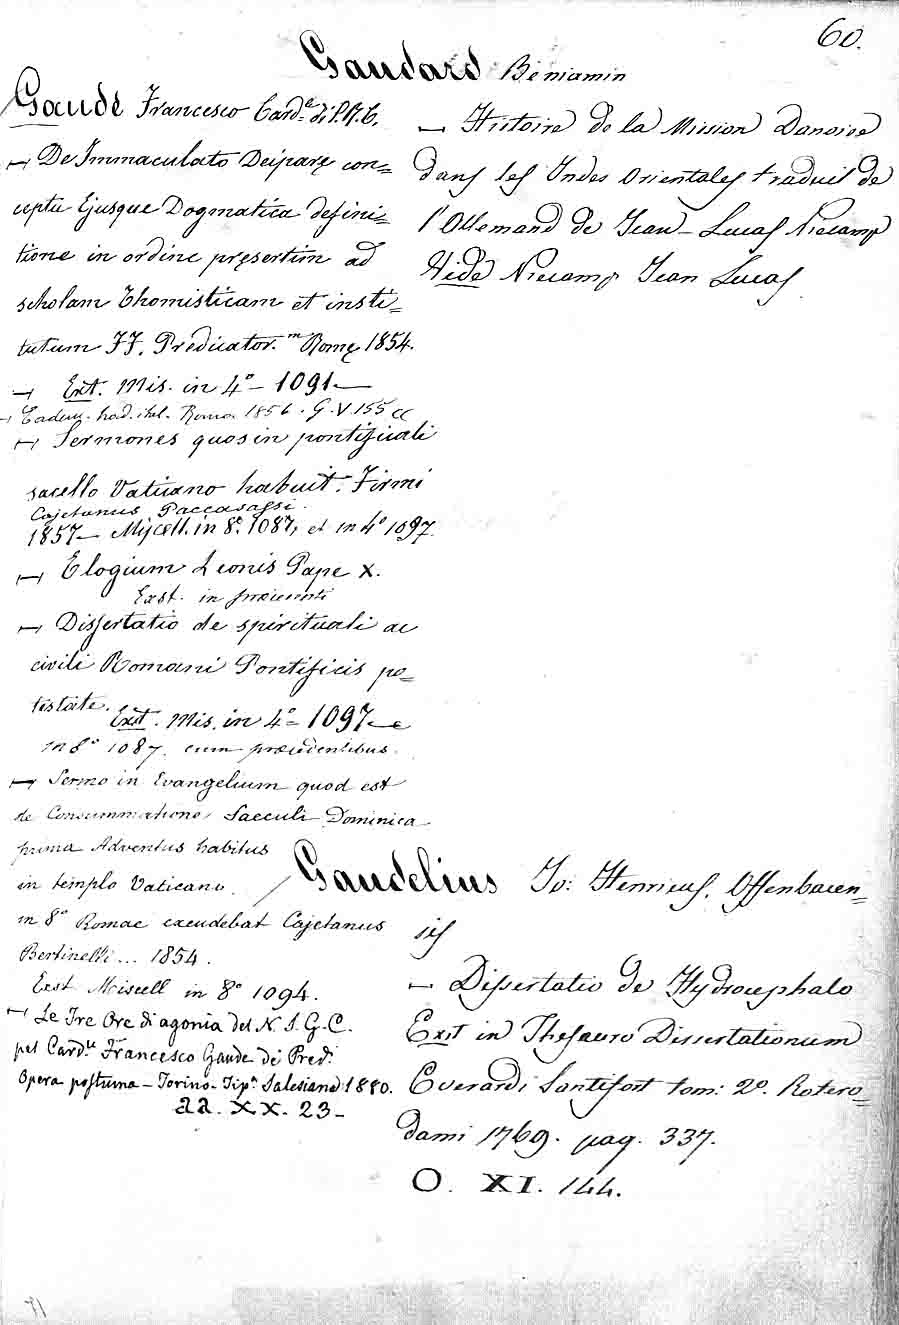 60.
Gaude Francesco Card.e di S.R.C.
— De Immaculato Deiparę con=
ceptu Ejusque Dogmatica defini=
tione in ordine pręsertim ad
scholam Thomisticam et insti=
tutum FF. Predicator.m Romę 1854.
— Ext. Mis. in 4º 1091—
— Eadem. Roma. 1856. G.V.155
— Sermones quos in pontificali
sacello Vaticano habuit. Firmi
Cajetanus Paccasassi.
1857— Miscell. in 8º 1087, et in 4º 1097.
— Elogium Leonis Pape X.
Exst. in
— Dissertatio de spirituali ac
civili Romani Pontificis po=
testate.
Exst. Mis. in 4º 1097—e
in 8º 1087. cum præcedentibus.
— Sermo in Evangelium quod est
de Consummatione Saeculi Dominica
prima Adventus habitus
in templo Vaticano.
in 8º Romae excudebat Cajetanus
Bertinelli... 1854.
Exst Miscell in 8º 1094.
— Le Tre Ore di agonia del N.S.G.C.
pel Card.le Francesco Gaude de' Pred.i
Opera postuma — Torino. Tip.a Salesiana 1880.
aa. XX. 23-
Gaudard Beniamin
— Histoire de la Mission Danoise
dans les Indes Orientales traduit de
l'Allemand de Jean-Lucas Niecamp
Vide Niecamp Jean Lucas
Gaudelius Jo: Henricus. Offenbacen=
sis
— Dissertatio de Hydrocephalo
Exst in Thesauro Dissertationum
Everardi Santifort tom: 2º. Rotero=
dami 1769. pag. 337.
O. XI. 144.